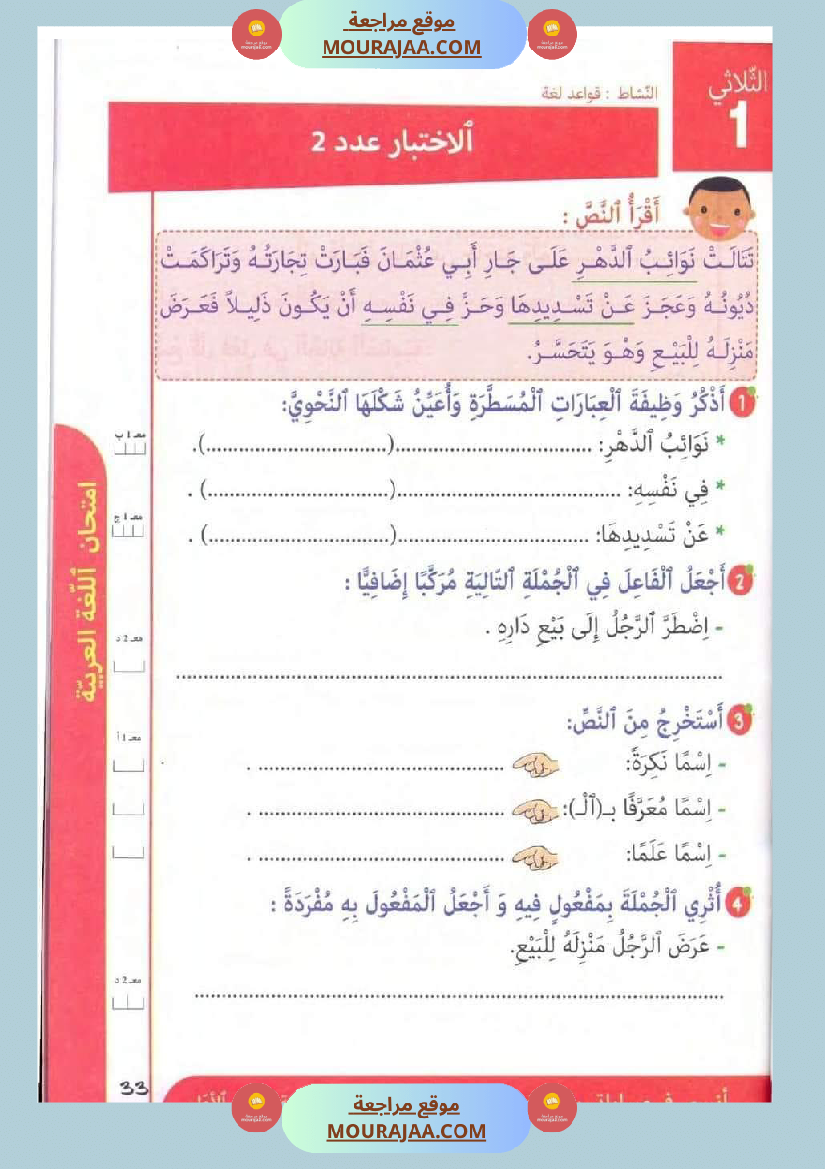 موقع مراجعة
MOURAJAA.COM
الثّلاثي
1
النّشاط : قواعد لغة
ٱلاختبار عدد 2
أَقْرَأُ ٱلنَّصَّ :
تَتَالَتْ نَوَائِبُ ٱلدَّهْرِ عَلَى جَارِ أَبِي عُثْمَانَ فَبَارَتْ تِجَارَتُهُ وَتَرَاكَمَتْ
دُيُونُهُ وَعَجَزَ عَنْ تَسْدِيدِهَا وَحَزَّ فِي نَفْسِهِ أَنْ يَكُونَ ذَلِيلاً فَعَرَضَ
مَنْزِلَهُ لِلْبَيْعِ وَهْوَ يَتَحَسَّرُ.
1 أَذْكُرُ وَظِيفَةَ ٱلْعِبَارَاتِ ٱلْمُسَطَّرَةِ وَأُعَيِّنُ شَكْلَهَا ٱلنَّحْوِيَّ:
* نَوَائِبُ ٱلدَّهْرِ: ....................................(.................................).
* فِي نَفْسِهِ: .........................................(.................................) .
* عَنْ تَسْدِيدِهَا: ...................................(.................................) .
2 أَجْعَلُ ٱلْفَاعِلَ فِي ٱلْجُمْلَةِ ٱلتّالِيَةِ مُرَكَّبًا إِضَافِيًّا :
- اِضْطَرَّ ٱلرَّجُلُ إِلَى بَيْعِ دَارِهِ .
....................................................................................................
3 أَسْتَخْرِجُ مِنَ ٱلنَّصِّ:
- اِسْمًا نَكِرَةً: ............................................. .
- اِسْمًا مُعَرَّفًا بـ(ٱلْـ): ............................................. .
- اِسْمًا عَلَمًا: ............................................. .
4 أُثْرِي ٱلْجُمْلَةَ بِمَفْعُولٍ فِيهِ وَ أَجْعَلُ ٱلْمَفْعُولَ بِهِ مُفْرَدَةً :
- عَرَضَ ٱلرَّجُلُ مَنْزِلَهُ لِلْبَيْعِ.
....................................................................................................
امتحان ٱللّغة العربيّة
معـ 1 ب
معـ 1 ج
معـ 2 د
معـ 1 أ
معـ 2 د
33
موقع مراجعة
MOURAJAA.COM